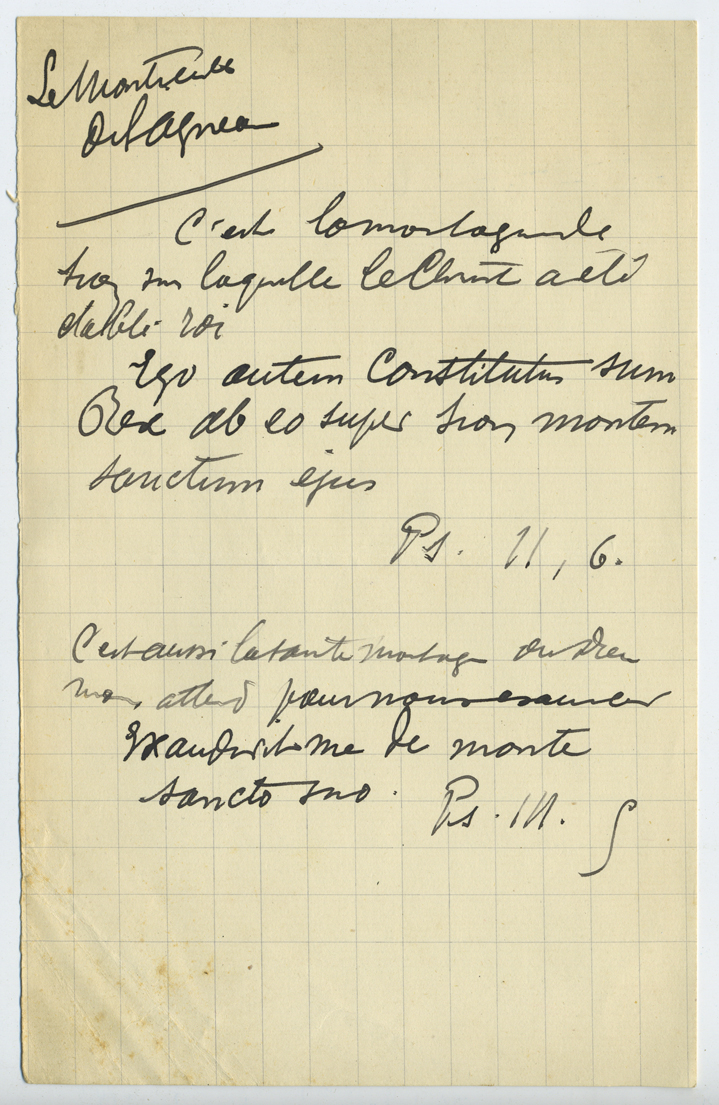 Le Monticule
de l'Agneau
C'est la montagne de
Sion sur laquelle le Christ a été
établi roi
Ego autem Constitutus sum
Rex ab eo super Sion montem
sanctum ejus
Ps. II, 6.
C'est aussi la sainte montagne où Dieu
nous attend pour nous exaucer
Exaudivit me de monte
sancto suo. Ps. III. 5